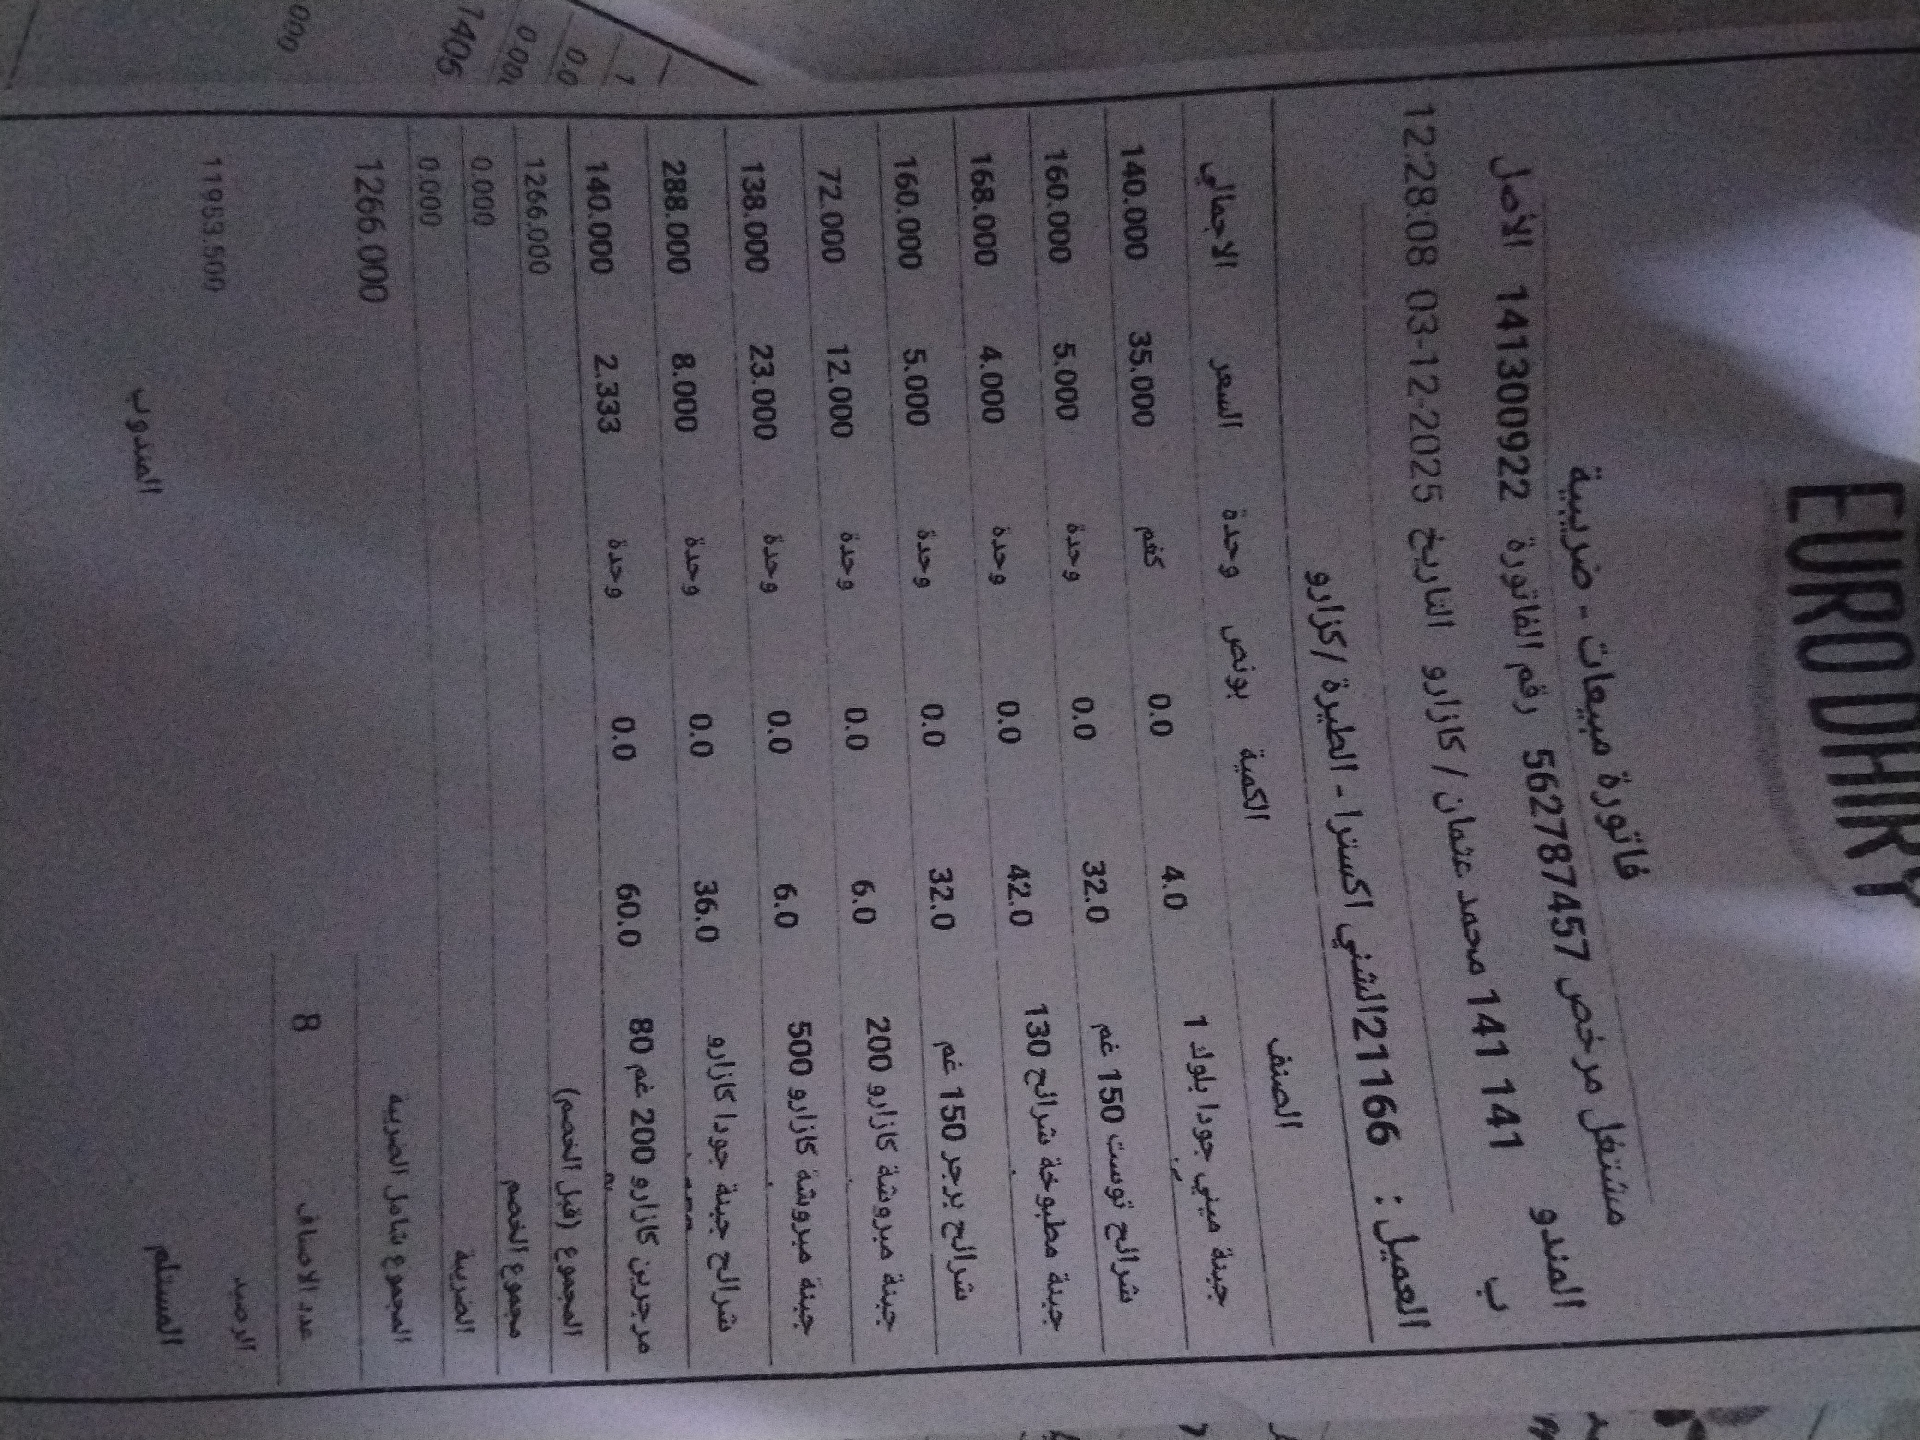 EURO DHIRY
فاتورة مبيعات - ضريبية
مشتغل مرخص 562787457 رقم الفاتورة 141300922 الأصل
المندوب 141 141 محمد عثمان / كازارو التاريخ 2025-12-03 12:28:08
العميل : 21166الشني اكسترا - الطيرة /كزارو
الصنف الكمية بونص وحدة السعر الاجمالي
جبنة ميني جودا بلوك 1 4.0 0.0 كغم 35.000 140.000
شرائح توست 150 غم 32.0 0.0 وحدة 5.000 160.000
جبنة مطبوخة شرائح 130 42.0 0.0 وحدة 4.000 168.000
شرائح برجر 150 غم 32.0 0.0 وحدة 5.000 160.000
جبنة مبروشة كازارو 200 6.0 0.0 وحدة 12.000 72.000
جبنة مبروشة كازارو 500 6.0 0.0 وحدة 23.000 138.000
شرائح جبنة جودا كازارو 36.0 0.0 وحدة 8.000 288.000
مرجرين كازارو 200 غم 80 60.0 0.0 وحدة 2.333 140.000
المجموع (قبل الخصم) 1266.000
مجموع الخصم 0.000
الضريبة 0.000
المجموع شامل الضريبة 1266.000
عدد الاصناف 8
الرصيد 11953.500
المستلم المندوب